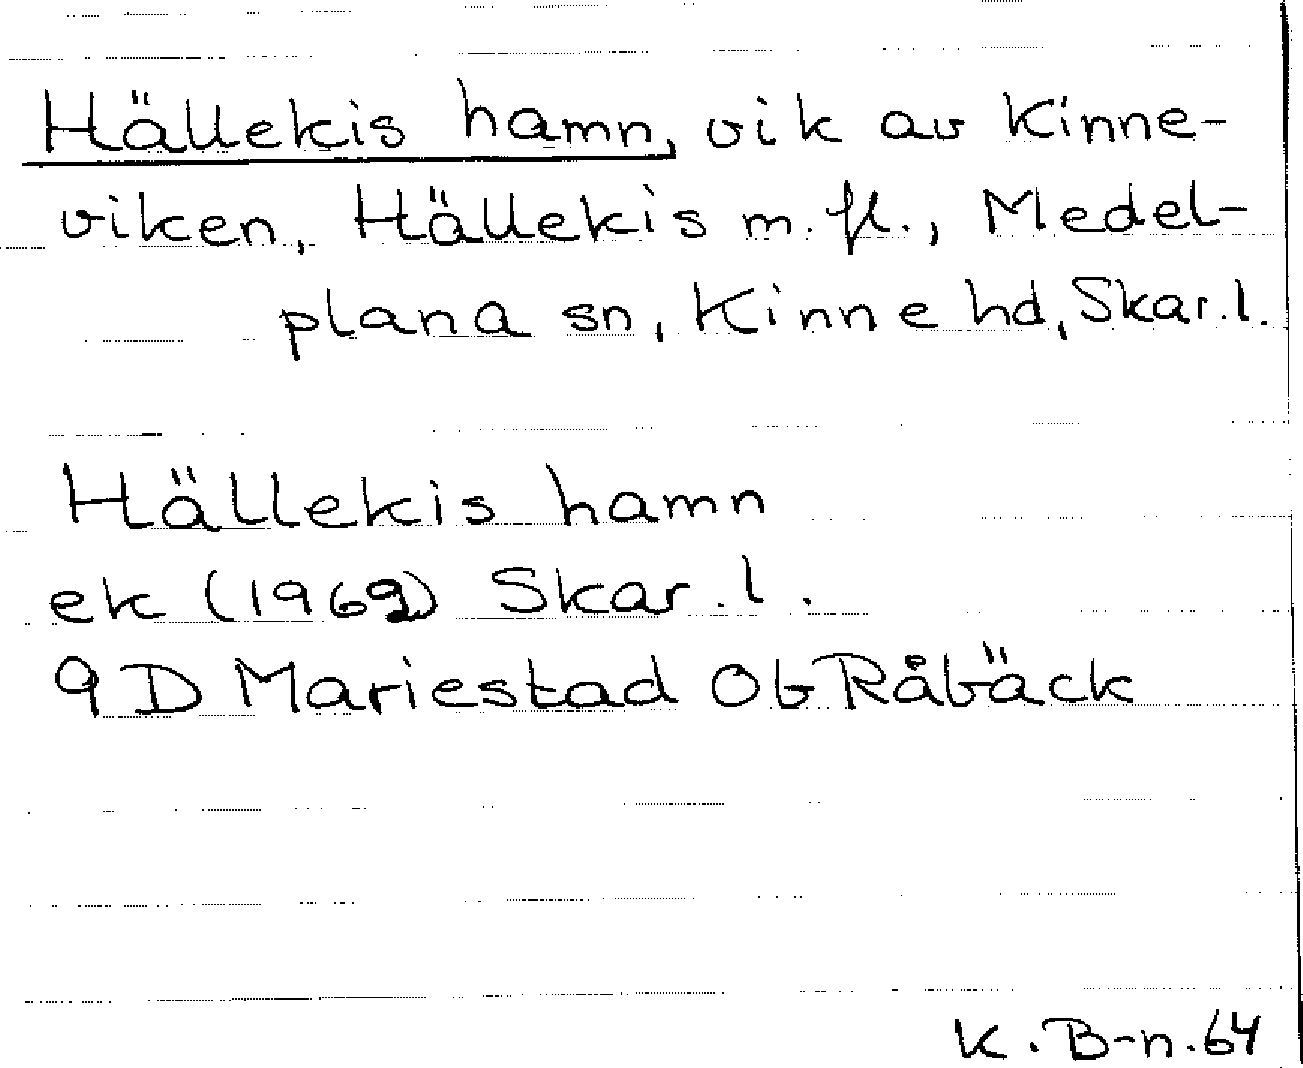 Hällekis hamn, vik av Kinne-
viken, Hällekis m. fl., Medel-
plana sn, Kinne hd, Skar. l.
Hällekis hamn
ek (1969) Skar. l.
9 D Mariestad Ob Råbäck
K. B-n. 64